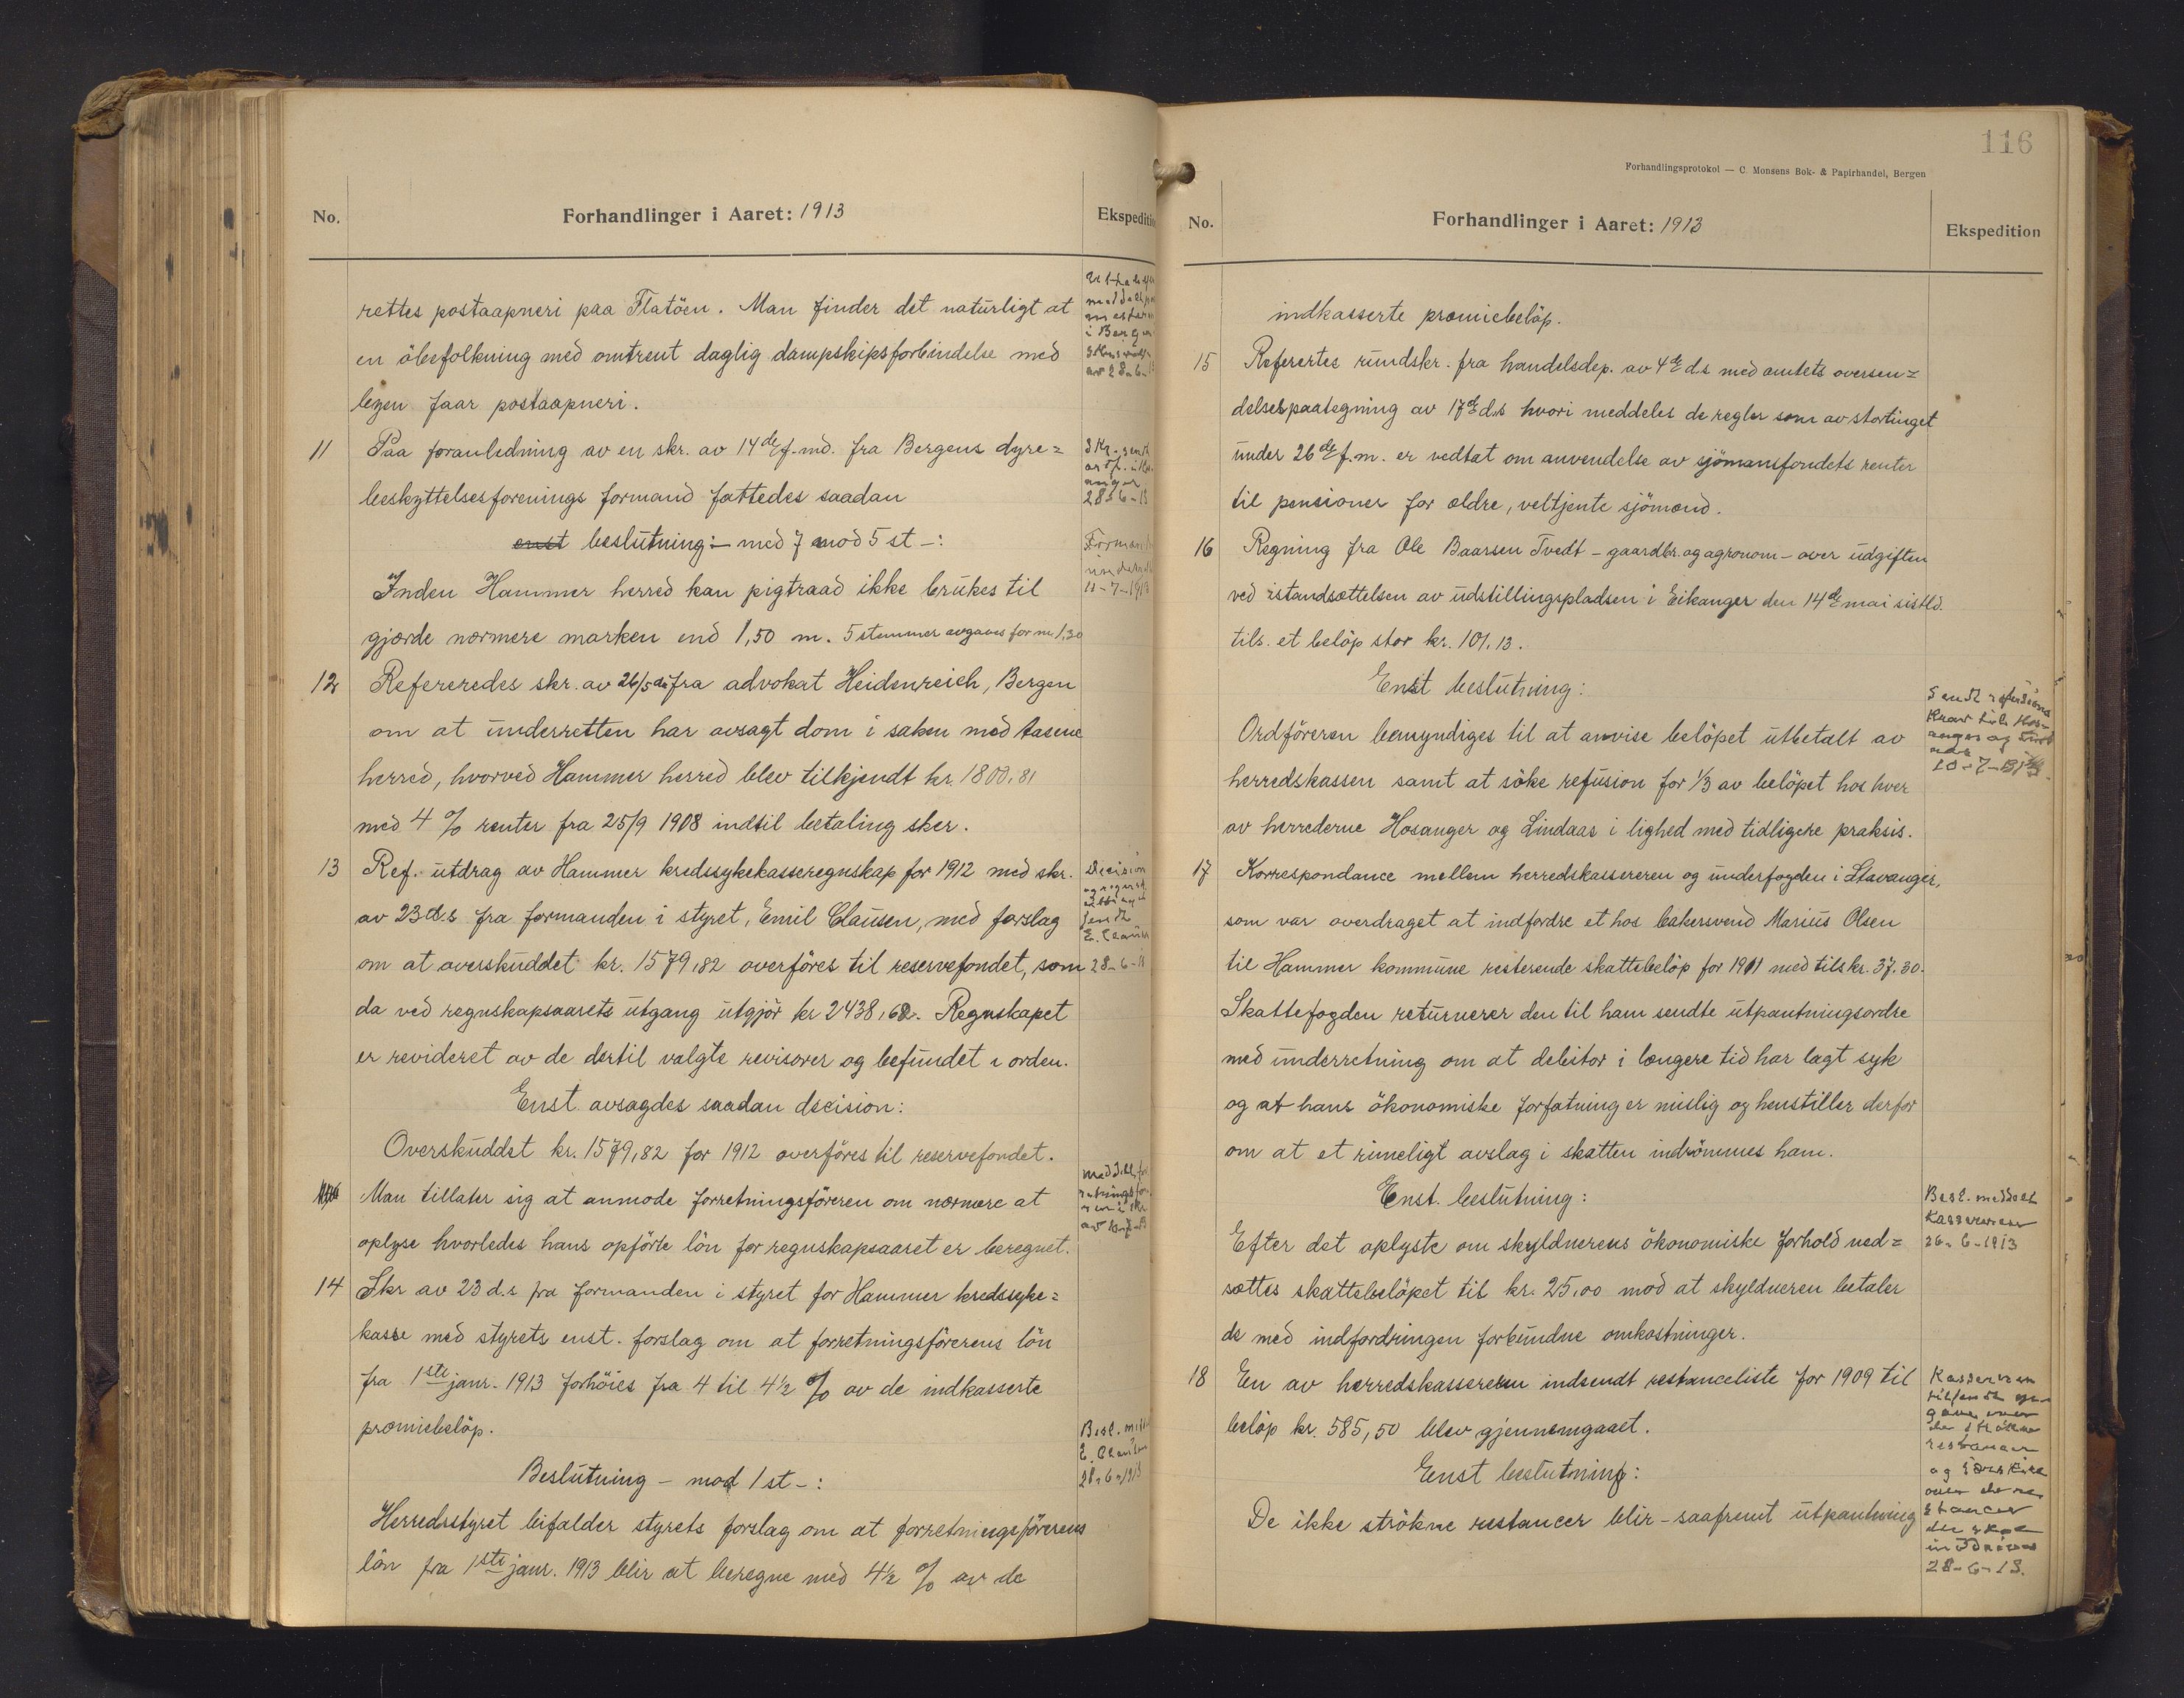 No.
Forhandlinger i Aaret: 1913
rettes postaapneri paa Flatöen. Man finder det naturligt at
en öbefolkning med omtrent daglig dampskipsforbindelse med
byen faar postaapneri.
11 Paa foranledning av en skr. av 14de f. md. fra Bergens dyre=
beskyttelsesforenings formand fattedes saadan
enst beslutning: – med 7 mod 5 st –:
Inden Hammer herred kan pigtraad ikke brukes til
gjærde nærmere marken end 1,50 m. 5 stemmer avgaves for m 1,30
12 Refereredes skr. av 26/5 ds fra advokat Heidenreich, Bergen
om at underretten har avsagt dom i saken mod Aasene
herred, hvorved Hammer herred blev tilkjendt kr. 1800,81
med 4 % renter fra 25/9 1908 indtil betaling sker.
13 Ref. utdrag av Hammer kredssykekasseregnskap for 1912 med skr.
av 23 d.s fra formanden i styret, Emil Clausen, med forslag
om at overskuddet kr. 1579,82 overföres til reservefondet, som
da ved regnskapsaarets utgang utgjör kr 2438,68. Regnskapet
er revideret av de dertil valgte revisorer og befundet i orden.
Enst. avsagdes saadan decision:
Overskuddet kr. 1579,82 for 1912 overföres til reservefondet.
Man tillater sig at anmode forretningsföreren om nærmere at
oplyse hvorledes hans opförte lön for regnskapsaaret er beregnet.
14 Skr av 23 d.s fra formanden i styret for Hammer kredssyke=
kasse med styrets enst. forslag om at forretningsförerens lön
fra 1ste janr. 1913 forhöies fra 4 til 4½ % av de indkasserte
præmiebelöp.
Beslutning – mod 1 st –:
Herredsstyret bifalder styrets forslag om at forretningsförerens
lön fra 1ste janr. 1913 blir at beregne med 4½ % av de
i Bergen
28-6-13
11-7-1913
Decision
sendt
E. Claus
28-6-13
Besl.
E. Clausen
28-6-1913
116
Forhandlingsprotokol — C. Monsens Bok- & Papirhandel, Bergen
No.
Forhandlinger i Aaret: 1913
Ekspedition
indkasserte præmiebelöp.
15 Referertes rundskr. fra handelsdep. av 4de ds med amtets oversen=
delsespaategning av 17de ds hvori meddeles de regler som av stortinget
under 26de f.m. er vedtat om anvendelse av sjömansfondets renter
til pensioner for ældre, veltjente sjömænd.
16 Regning fra Ole Baarsen Tvedt – gaardbr. og agronom – over udgiften
ved istandsættelsen av udstillingspladsen i Eikanger den 14de mai sistld.
tils. et belöp stor kr. 101.13.
Enst beslutning:
Ordföreren bemyndiges til at anvise belöpet utbetalt av
herredskassen samt at söke refusion for 1/3 av belöpet hos hver
av herrederne Hosanger og Lindaas i lighed med tidligere praksis.
17 Korrespondance mellem herredskassereren og underfogden i Stavanger,
som var overdraget at indfordre et hos bakersvend Marius Olsen
til Hammer kommune resterende skattebelöp for 1911 med tils kr. 37.30.
Skattefogden returnerer den til ham sendte utpantningsordre
med underretning om at debitor i længere tid har lagt syk
og at hans ökonomiske forfatning er mislig og henstiller derfor
om at et rimeligt avslag i skatten indrömmes ham.
Enst. beslutning:
Efter det oplyste om skyldnerens ökonomiske forhold ned=
sættes skattebelöpet til kr. 25,00 mod at skyldneren betaler
de med indfordringen forbundne omkostninger.
18 En av herredskassereren indsendt restanceliste for 1909 til
belöp kr. 585,50 blev gjennemgaaet.
Enst beslutning:
De ikke strökne restancer blir – saafremt utpantning
Sendt refusions
krav til Hos-
anger og Lind
aas
10-7-
Besl. meddelt
Kassereren
26-6-1913
Kassereren
tilsendt
over
de strökne
restancer
og
over de re
stancer
der skal
inddrives
28-6-13.